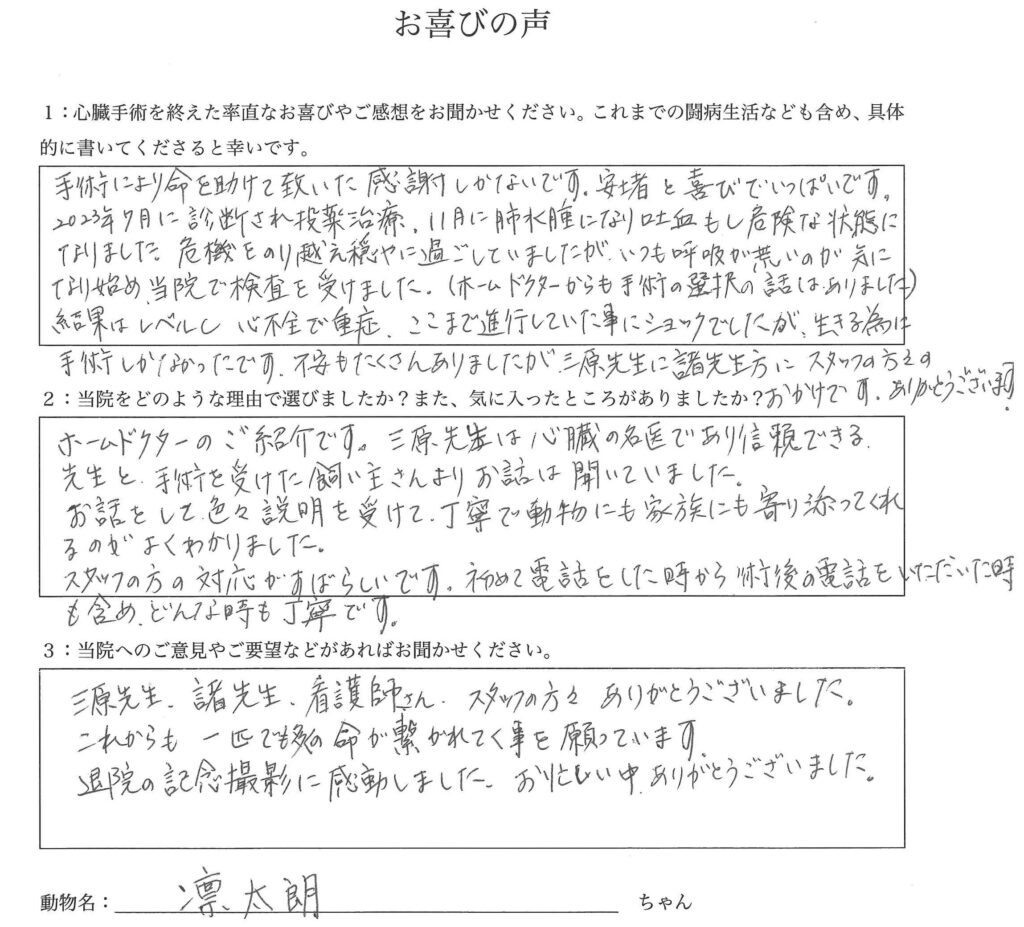 お喜びの声
1：心臓手術を終えた率直なお喜びやご感想をお聞かせください。これまでの闘病生活なども含め、具体
的に書いてくださると幸いです。
手術により命を助けて致いた感謝しかないです。安堵と喜びでいっぱいです。
2023年7月に診断され投薬治療、11月に肺水腫になり吐血もし危険な状態に
なりました。危機をのり越え穏やに過ごしていましたが、いつも呼吸が荒いのが気に
なり始め、当院で検査を受けました。(ホームドクターからも手術の選択の話はありました)
結果はレベルC 心不全で重症、ここまで進行していた事にショックでしたが、生きる為には
手術しかなかったです。不安もたくさんありましたが三原先生に諸先生方に スタッフの方々の
おかけです。ありがとうございます。
2：当院をどのような理由で選びましたか？また、気に入ったところがありましたか？
ホームドクターのご紹介です。三原先生は心臓の名医であり信頼できる
先生と、手術を受けた飼い主さんよりお話は聞いていました。
お話をして、色々説明を受けて、丁寧で動物にも家族にも寄り添ってくれ
るのがよくわかりました。
スタッフの方の対応がすばらしいです。初めて電話をした時から術後の電話をいただいた時
も含め、どんな時も丁寧です。
3：当院へのご意見やご要望などがあればお聞かせください。
三原先生、諸先生、看護師さん、スタッフの方々 ありがとうございました。
これからも 一匹でも多の命が繋がれてく事を願っています。
退院の記念撮影に感動しました。お忙しい中、ありがとうございました。
動物名： 凛太朗 ちゃん